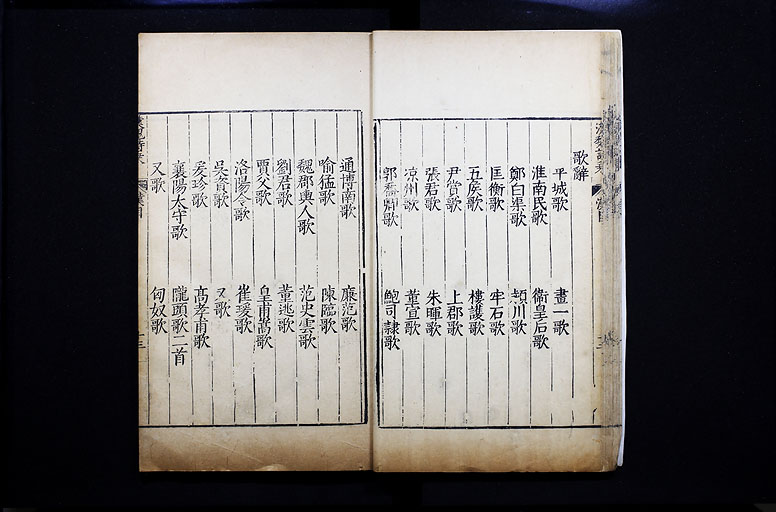 歌辭
平城歌 畫一歌
淮南民歌 衞皇后歌
鄭白渠歌 潁川歌
匡衡歌 牢石歌
五矦歌 樓護歌
尹賞歌 上郡歌
張君歌 朱暉歌
涼州歌 董宣歌
郭喬卿歌 鮑司隸歌
通博南歌 廉范歌
喻猛歌 陳臨歌
魏郡輿人歌 范史雲歌
劉君歌 董逃歌
賈父歌 皇甫嵩歌
洛陽令歌 崔瑗歌
吳資歌 又歌
爰珍歌 高孝甫歌
襄陽太守歌 隴頭歌二首
又歌 匈奴歌